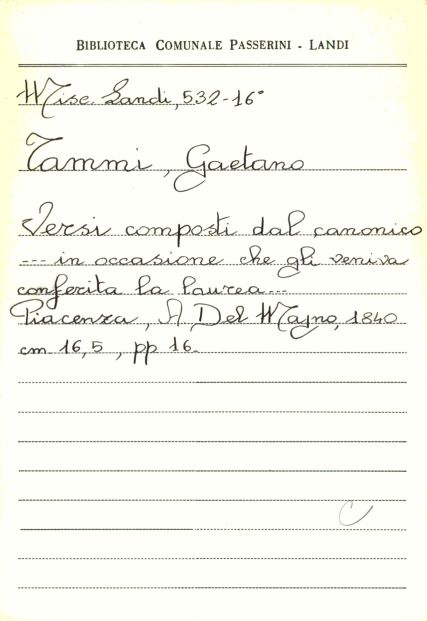 BIBLIOTECA COMUNALE PASSERINI - LANDI
Misc. Landi, 532-16°
Tammi, Gaetano
Versi composti dal canonico
--- in occasione che gli veniva
conferita la laurea ---
Piacenza, A Del Majno, 1840
cm. 16,5, pp 16.
C